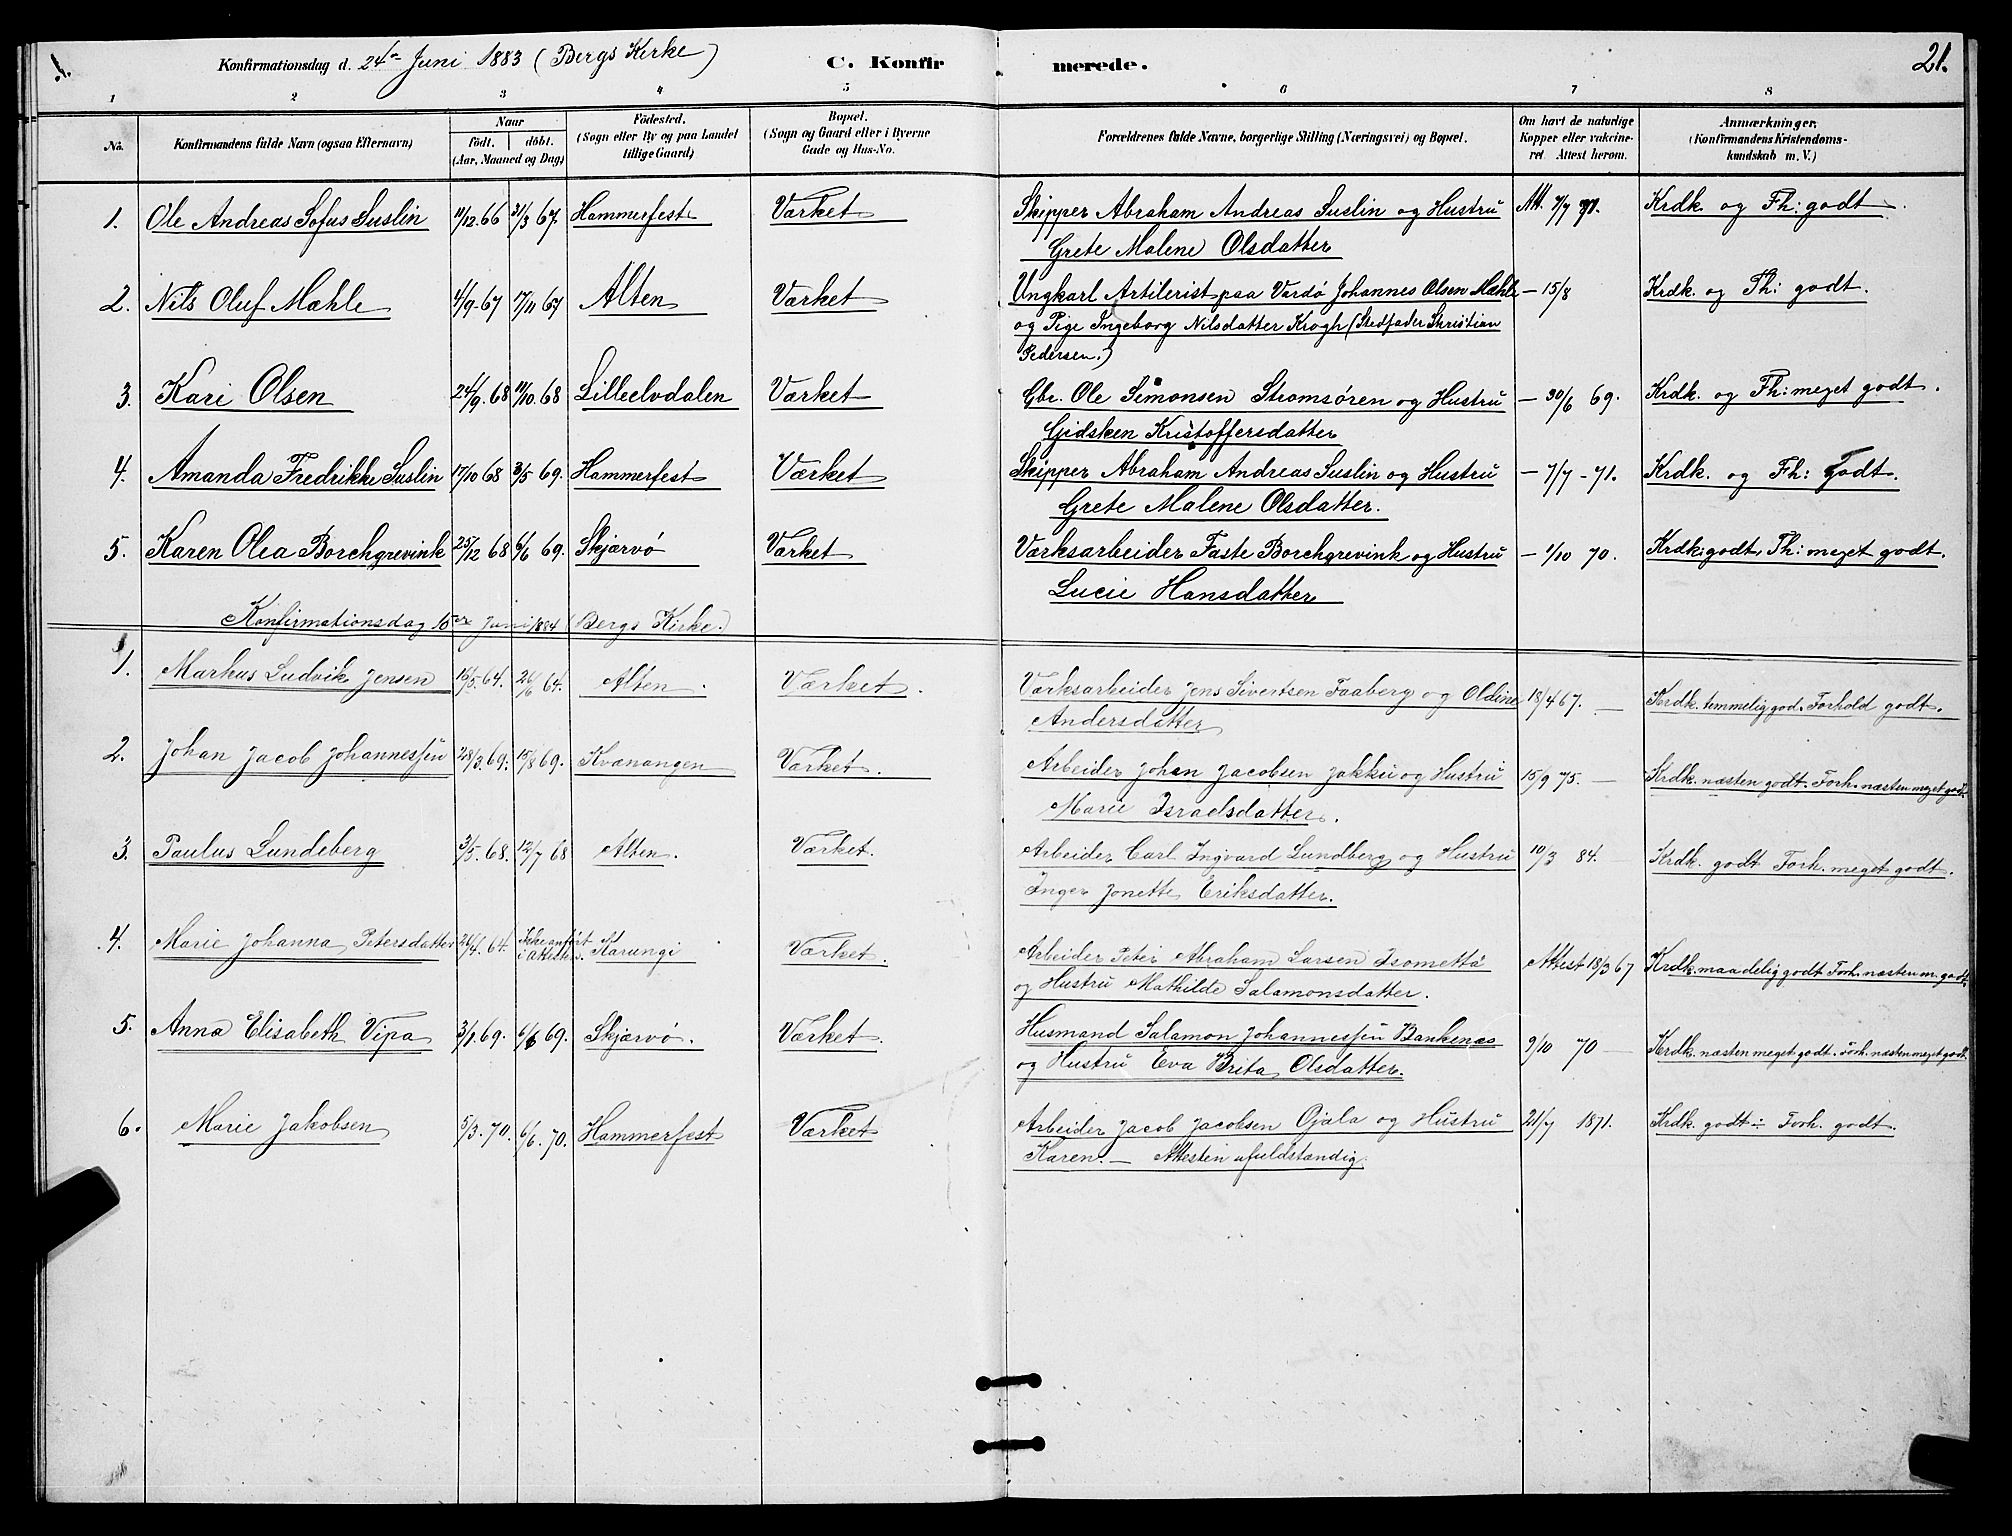 1. Konfirmationsdag d. 24de Juni 1883 (Bergs Kirke) C. Konfirmerede. 21.
1 2 3 4 5 6 7 8
No. Konfirmandens fulde Navn (ogsaa Efternavn) Naar födt. döbt. (Aar, Maaned og Dag) Födested. (Sogn eller By og paa Landet tillige Gaard) Bopæl. (Sogn og Gaard eller i Byerne Gade og Hus-No. Forældrenes fulde Navne, borgerlige Stilling (Næringsvei) og Bopæl. Om havt de naturlige Kopper eller vakcineret Attest herom. Anmærkninger, (Konfirmandens Kristendomskundskab m. V.)
1. Ole Andreas Sofus Suslin 11/12.66 31/3 67. Hammerfest Værket Skipper Abraham Andreas Suslin og Hustru Att. 7/7 71. Krdk. og Fh: godt.
Grete Malene Olsdatter
2. Nils Oluf Mæhle 4/9-67 17/11 67 Alten Værket Ungkarl Artilerist paa Vardø Johannes Olsen Mæhle — 15/8 Krdk. og Fh: godt.
og Pige Ingeborg Nilsdatter Krogh (Stedfader Christian
Pedersen.)
3. Kari Olsen 24/9.68 11/10.68 Lilleelvdalen Værket Gbr. Ole Simonsen Strømsøren og Hustru — 30/6 69. Krdk. og Fh: meget godt.
Gidsken Kristoffersdatter
4. Amanda Fredrikke Suslin 17/10 68 3/5 69. Hammerfest Værket Skipper Abraham Andreas Suslin og Hustru — 7/7 - 71. Krdk. og Fh: Godt.
Grete Malene Olsdatter.
5. Karen Olea Borchgrevink 25/12 68 6/6 69. Skjærvö Værket Værksarbeider Faste Borchgrevink og Hustru — 1/10 70. Krdk: godt, Fh: meget godt.
Lucie Hansdatter
Konfirmationsdag 15de Juni 1884 (Bergs Kirke.)
1. Markus Ludvik Jensen 15/5.64. 26/6 64. Alten. Værket. Værksarbeider Jens Sivertsen Faaberg og Oldine 18/4 67. — Krdk. temmelig god. Forhold godt.
Andersdatter
2. Johan Jacob Johannessen 28/3.69. 15/8 69. Kvænangen Værket. Arbeider Johan Jacobsen Jakku og Hustru 15/9 75. — Krdk. næsten godt. Forh. næsten meget godt.
Marie Israelsdatter.
3. Paulus Lundeberg 3/5.68. 12/7 68 Alten. Værket. Arbeider Carl Ingvard Lundberg og Hustru 10/3 84. — Krdk. godt Forh. meget godt.
Inger Jonette Eriksdatter.
4. Marie Johanna Petersdatter 26/4.64. Ikke anført i Attesten. Karungi Værket. Arbeider Peter Abraham Larsen Isometta Attest 18/3 67 Krdk. maadelig godt Forh. næsten m. godt.
og Hustru Mathilde Salamonsdatter.
5. Anna Elisabeth Vipa 3/1.69. 6/6 69. Skjærvö. Værket. Husmand Salamon Johannessen Bankenæs 9/10 70 — Krdk. næsten meget godt. Forh. næsten meget godt.
og Hustru Eva Brita Olsdatter.
6. Marie Jakobsen 5/3.70. 6/6.70. Hammerfest Værket Arbeider Jacob Jacobsen Ojala og Hustru 21/7 1871. Krdk. godt ÷ Forh. godt.
Karen. — Attesten ufuldstændig.